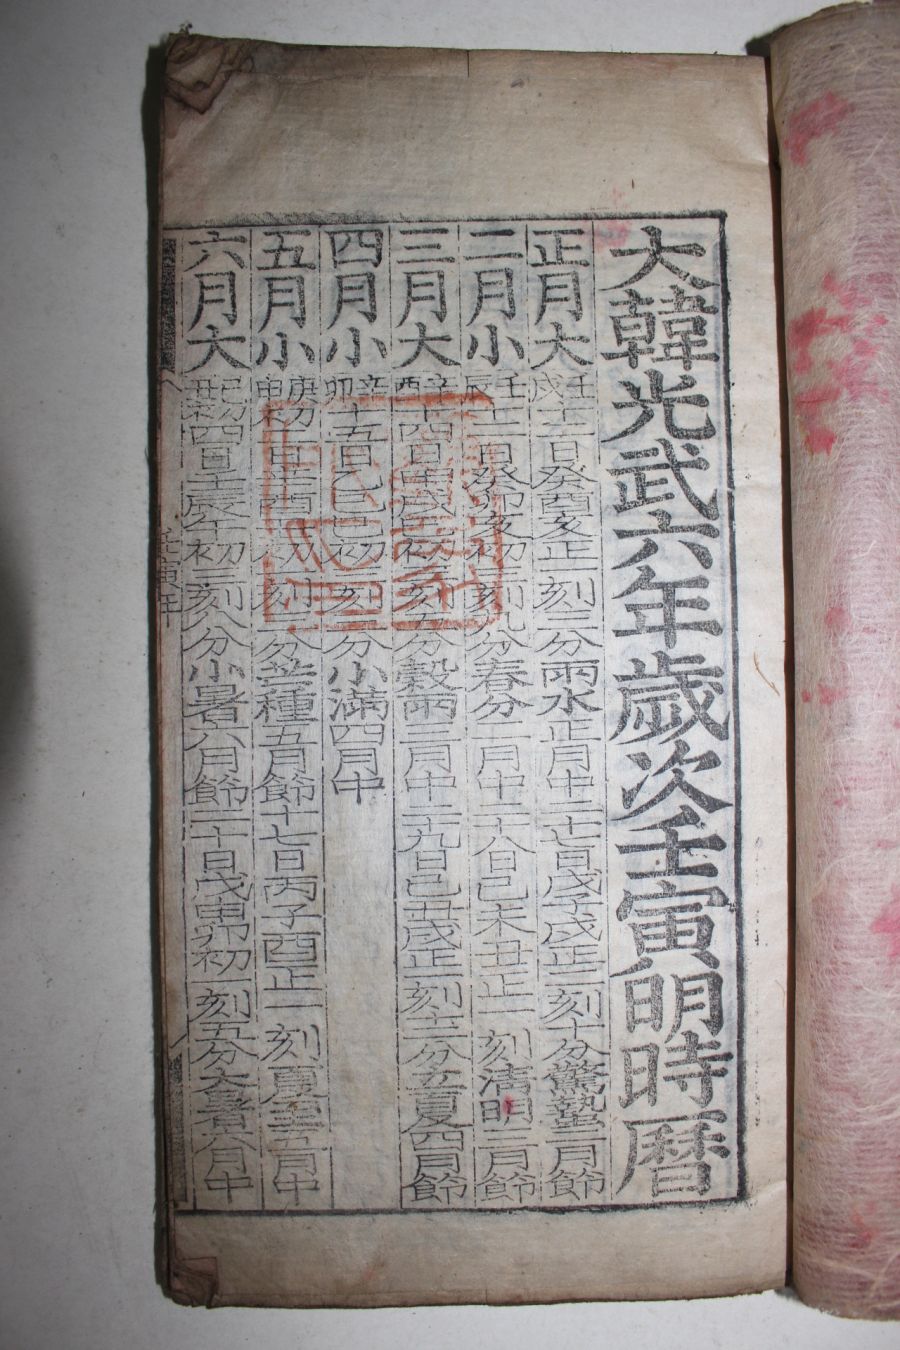 大韓光武六年歲次壬寅明時曆
正月大 壬戌 十二日癸酉亥正一刻三分雨水正月中二十七日戊子戌正三刻十分驚蟄二月節
二月小 壬辰 十二日癸卯亥初一刻九分春分二月中二十八日己未丑正一刻清明三月節
三月大 辛酉 十四日甲戌巳初一刻五分穀雨三月中二十九日己丑戌正一刻十二分立夏四月節
四月小 辛卯 十五日乙巳巳初二刻三分小滿四月中
五月小 庚申 初一 酉 初 刻 分芒種五月節十七日丙子酉正一刻夏至五月中
六月大 己丑 初四日壬辰午初三刻八分小暑六月節二十日戊申卯初一刻五分大暑六月中